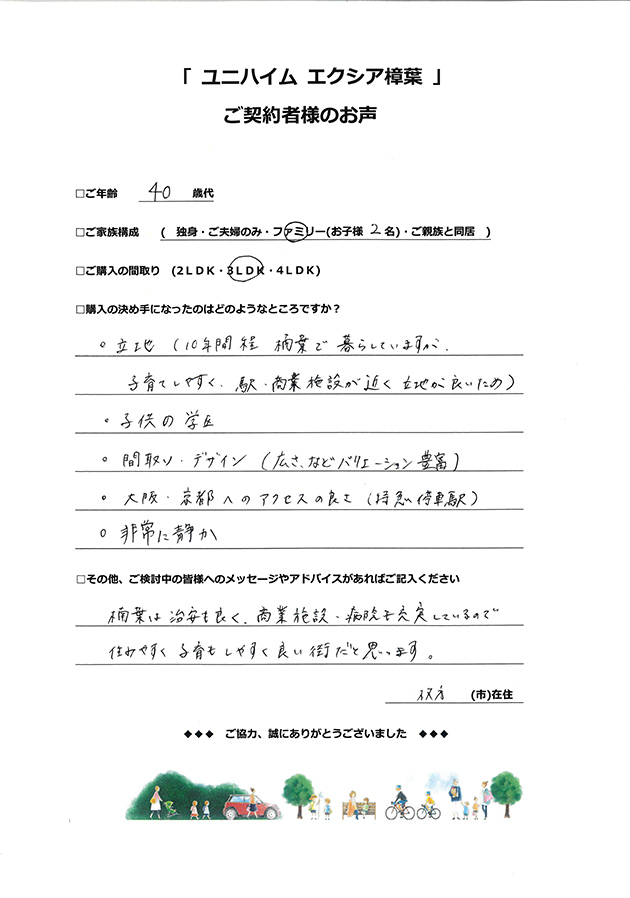 「 ユニハイム エクシア樟葉 」
ご契約者様のお声
□ご年齢 40 歳代
□ご家族構成 ( 独身・ご夫婦のみ・ファミリー(お子様 2 名)・ご親族と同居 )
□ご購入の間取り (2LDK・3LDK・4LDK)
□購入の決め手になったのはどのようなところですか？
○ 立地 (10年間程 楠葉で 暮らしていますが、
子育てしやすく、駅・商業施設が近く 立地が良いため)
・ 子供の 学区
○ 間取り・デザイン (広さ、などバリエーション豊富)
・ 大阪・京都へのアクセスの良さ (特急停車駅)
○ 非常に静か
□その他、ご検討中の皆様へのメッセージやアドバイスがあればご記入ください
楠葉は治安も良く、商業施設・病院も充実しているので
住みやすく子育もしやすく良い街だと思います。
枚方 (市)在住
◆◆◆ ご協力、誠にありがとうございました ◆◆◆